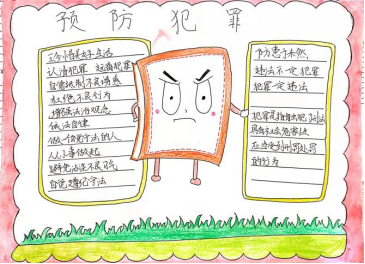 预防犯罪
珍惜美好生活
认清犯罪 远离犯罪
自觉抵制不良诱惑
杜绝不良行为
增强法治观念
依法自律
做一个守法的人
从小事做起
避免沾染不良习气
自觉遵纪守法
防患于未然,
违法不一定犯罪
犯罪一定违法
犯罪是指触犯刑法
具有社会危害性
应当受到刑罚处罚
的行为